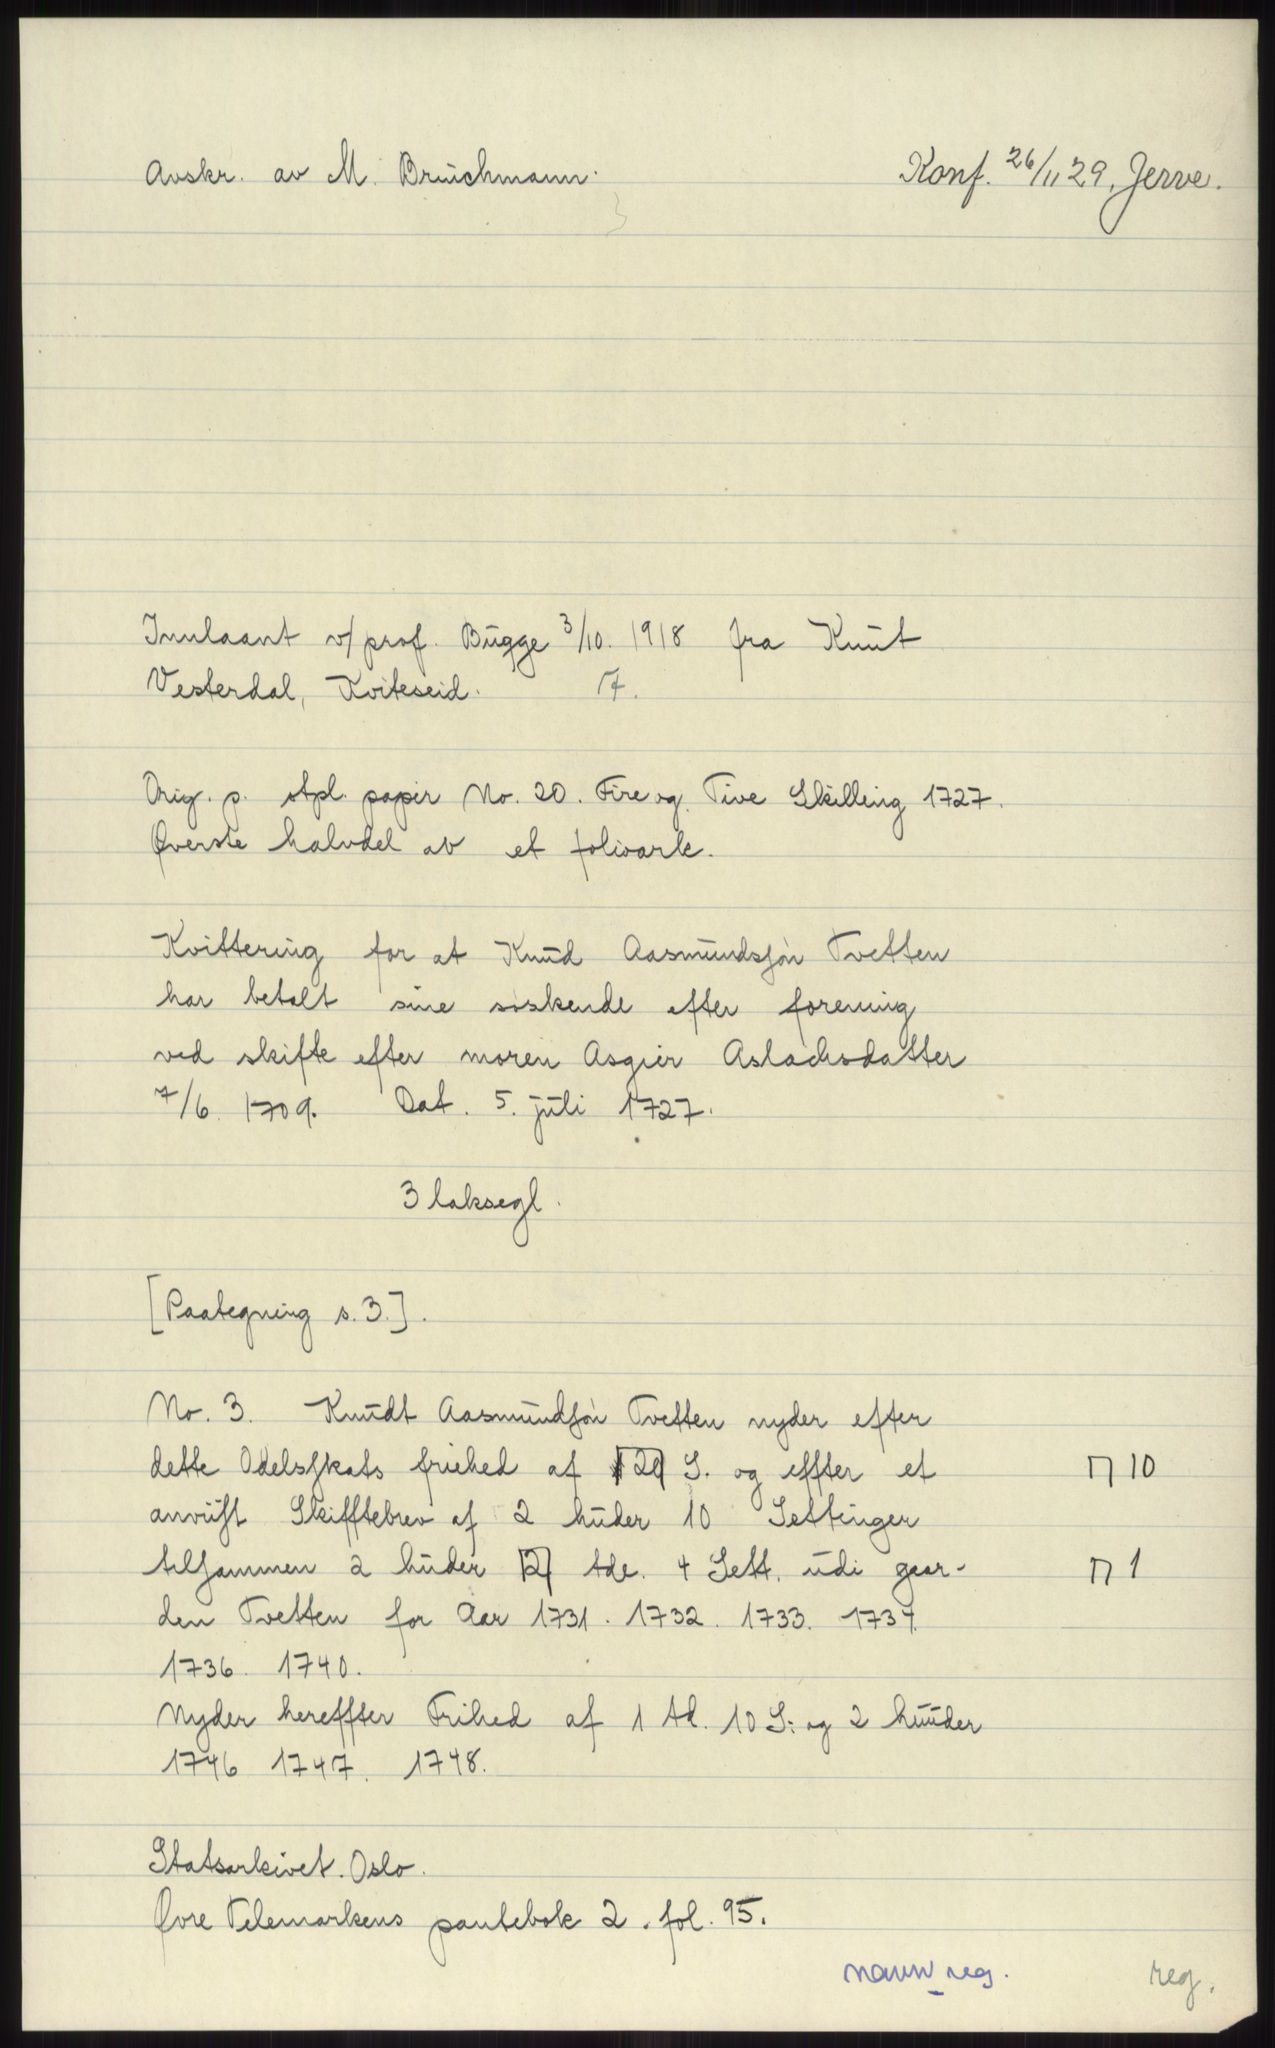 Avskr. av M. Bruchmann.
Konf. 26/11 29, Jerve.
Innlaant v/ prof. Bugge 3/10. 1918 fra Knut
Vesterdal, Kviteseid.
Orig. p. stpl. papir No. 20. Fire og Tive Skilling 1727.
Øverste halvdel av et folioark.
Kvittering for at Knud Aasmundsøn Tvetten
har betalt sine søskende efter forening
ved skifte efter moren Asgier Aslachsdatter
7/6 1709. Dat. 5. juli 1727.
3 laksegl.
[Paategning s. 3.].
No. 3. Knudt Aasmundsøn Tvetten nyder efter
dette Odelsskats friehed af 20 S. og effter et
⊓ 10
anvist Skifftebrev af 2 huder 10 Settinger
tilsammen 2 huder 2 tde. 4 Sett. udi gaar-
⊓ 1
den Tvetten for Aar 1731. 1732. 1733. 1734.
1736. 1740.
Nyder hereffter Frihed af 1 td. 10 S: og 2 huuder
1746 1747. 1748.
Statsarkivet. Oslo.
Øvre Telemarkens pantebok 2. fol. 95.
navn reg.
reg.